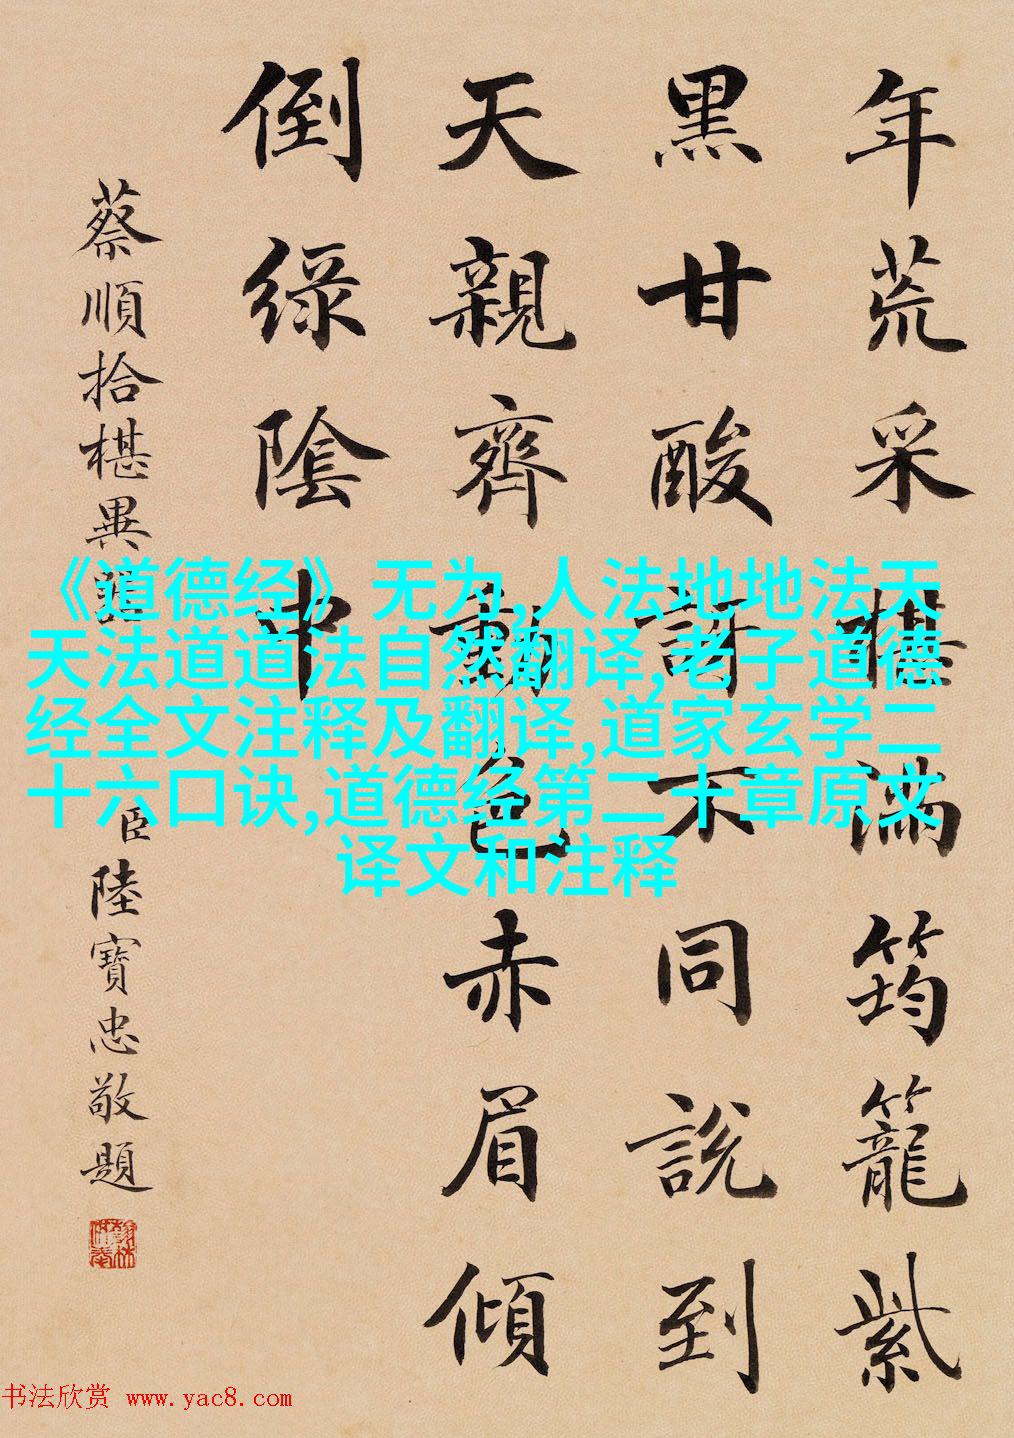 年荒采椹滿筠籠紫
黑甘酸訝不同說到
天親齊動色赤眉傾
倒綠陰中
蔡順拾椹異器
臣陸寶忠敬題
《道德经》无为,人法地地法天
天法道道法自然翻译,老子道德
经全文注释及翻译,道家玄学二
十六口诀,道德经第二十章原文
译文和注释
书法欣赏 www.yac8.com